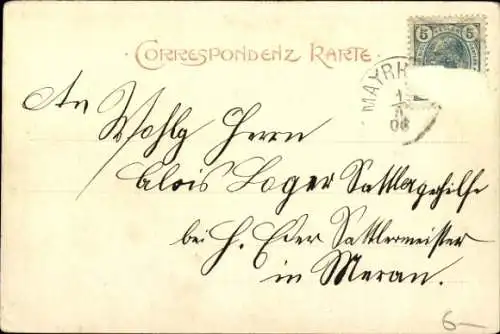 CORRESPONDENZ KARTE
5 5
MAYRH
1
8
06
An Wohlg Herrn
Alois Lager Sattlergehilfe
bei H. Eder Sattlermeister
in Meran.
6—